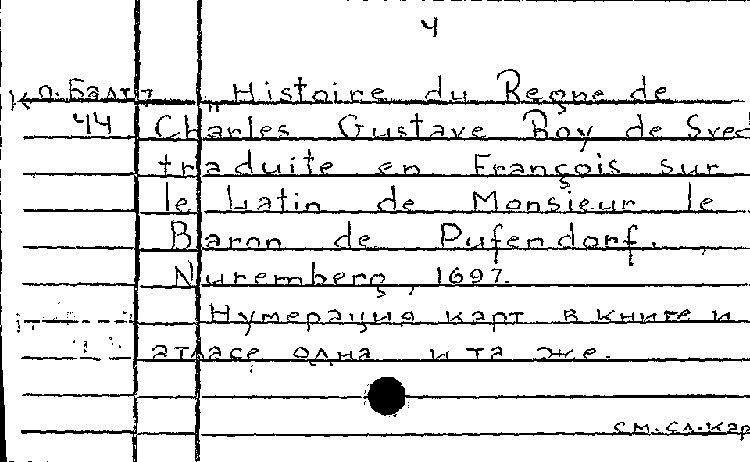 4
К о. Балт. 7 „Histoire du Regne de
44 Charles Gustave Roy de Sved
traduite en François sur
le Latin de Monsieur le
Baron de Pufendorf.
Nuremberg, 1697.
Нумерация карт в книге и
атласе одна и та же.
см. сл. кар